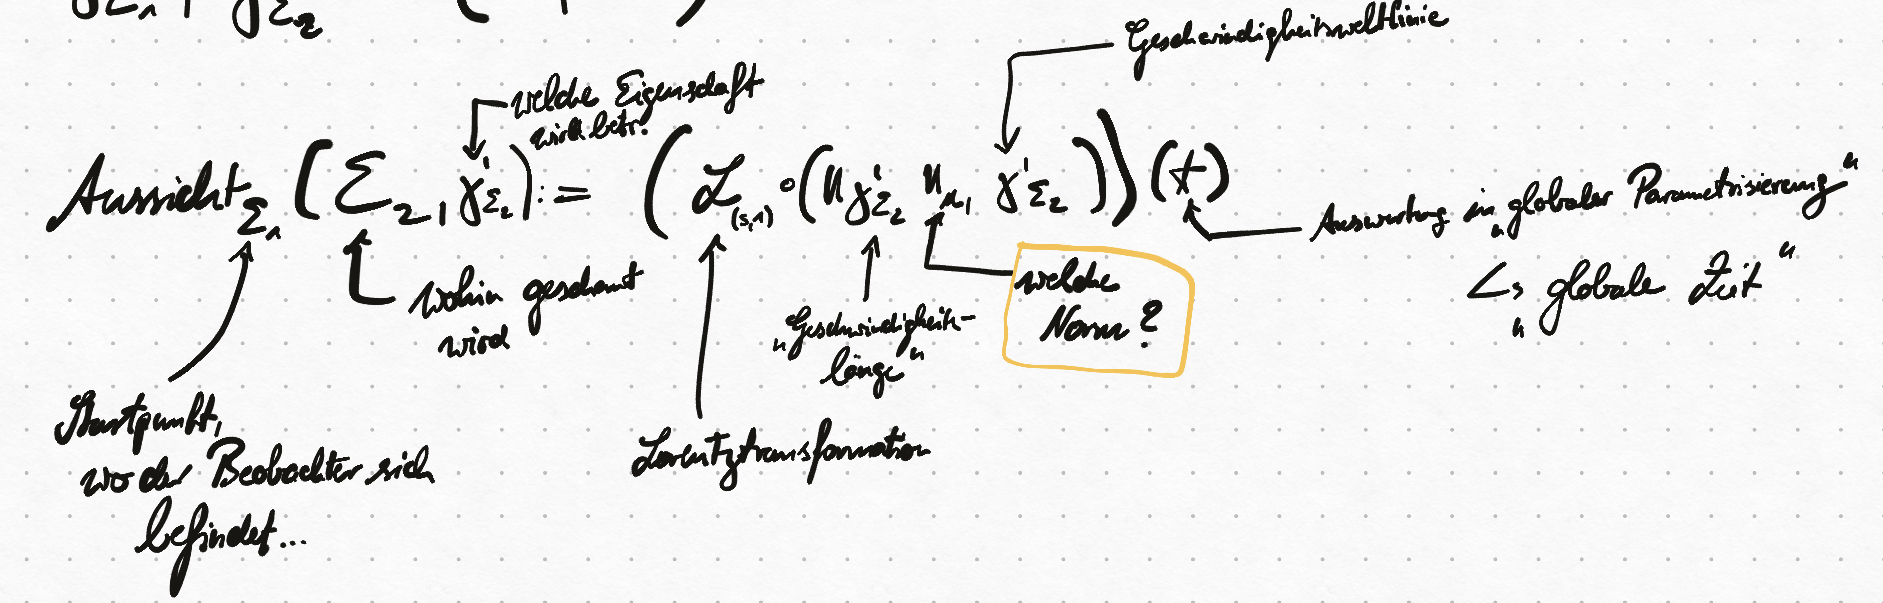 Geschwindigkeitsweltlinie
welche Eigenschaft
wird betr.
Aussicht_Σ₁ (Σ₂, γ'_Σ₂) := (ℒ_(s,1) ∘ (‖γ'_Σ₂‖_μ, γ'_Σ₂))(t)
Auswertung in „globaler Parametrisierung“
↳ „globale Zeit“
wohin geschaut
wird
welche
Norm?
„Geschwindigkeits-
länge“
Startpunkt,
wo der Beobachter sich
befindet...
Lorentztransformation